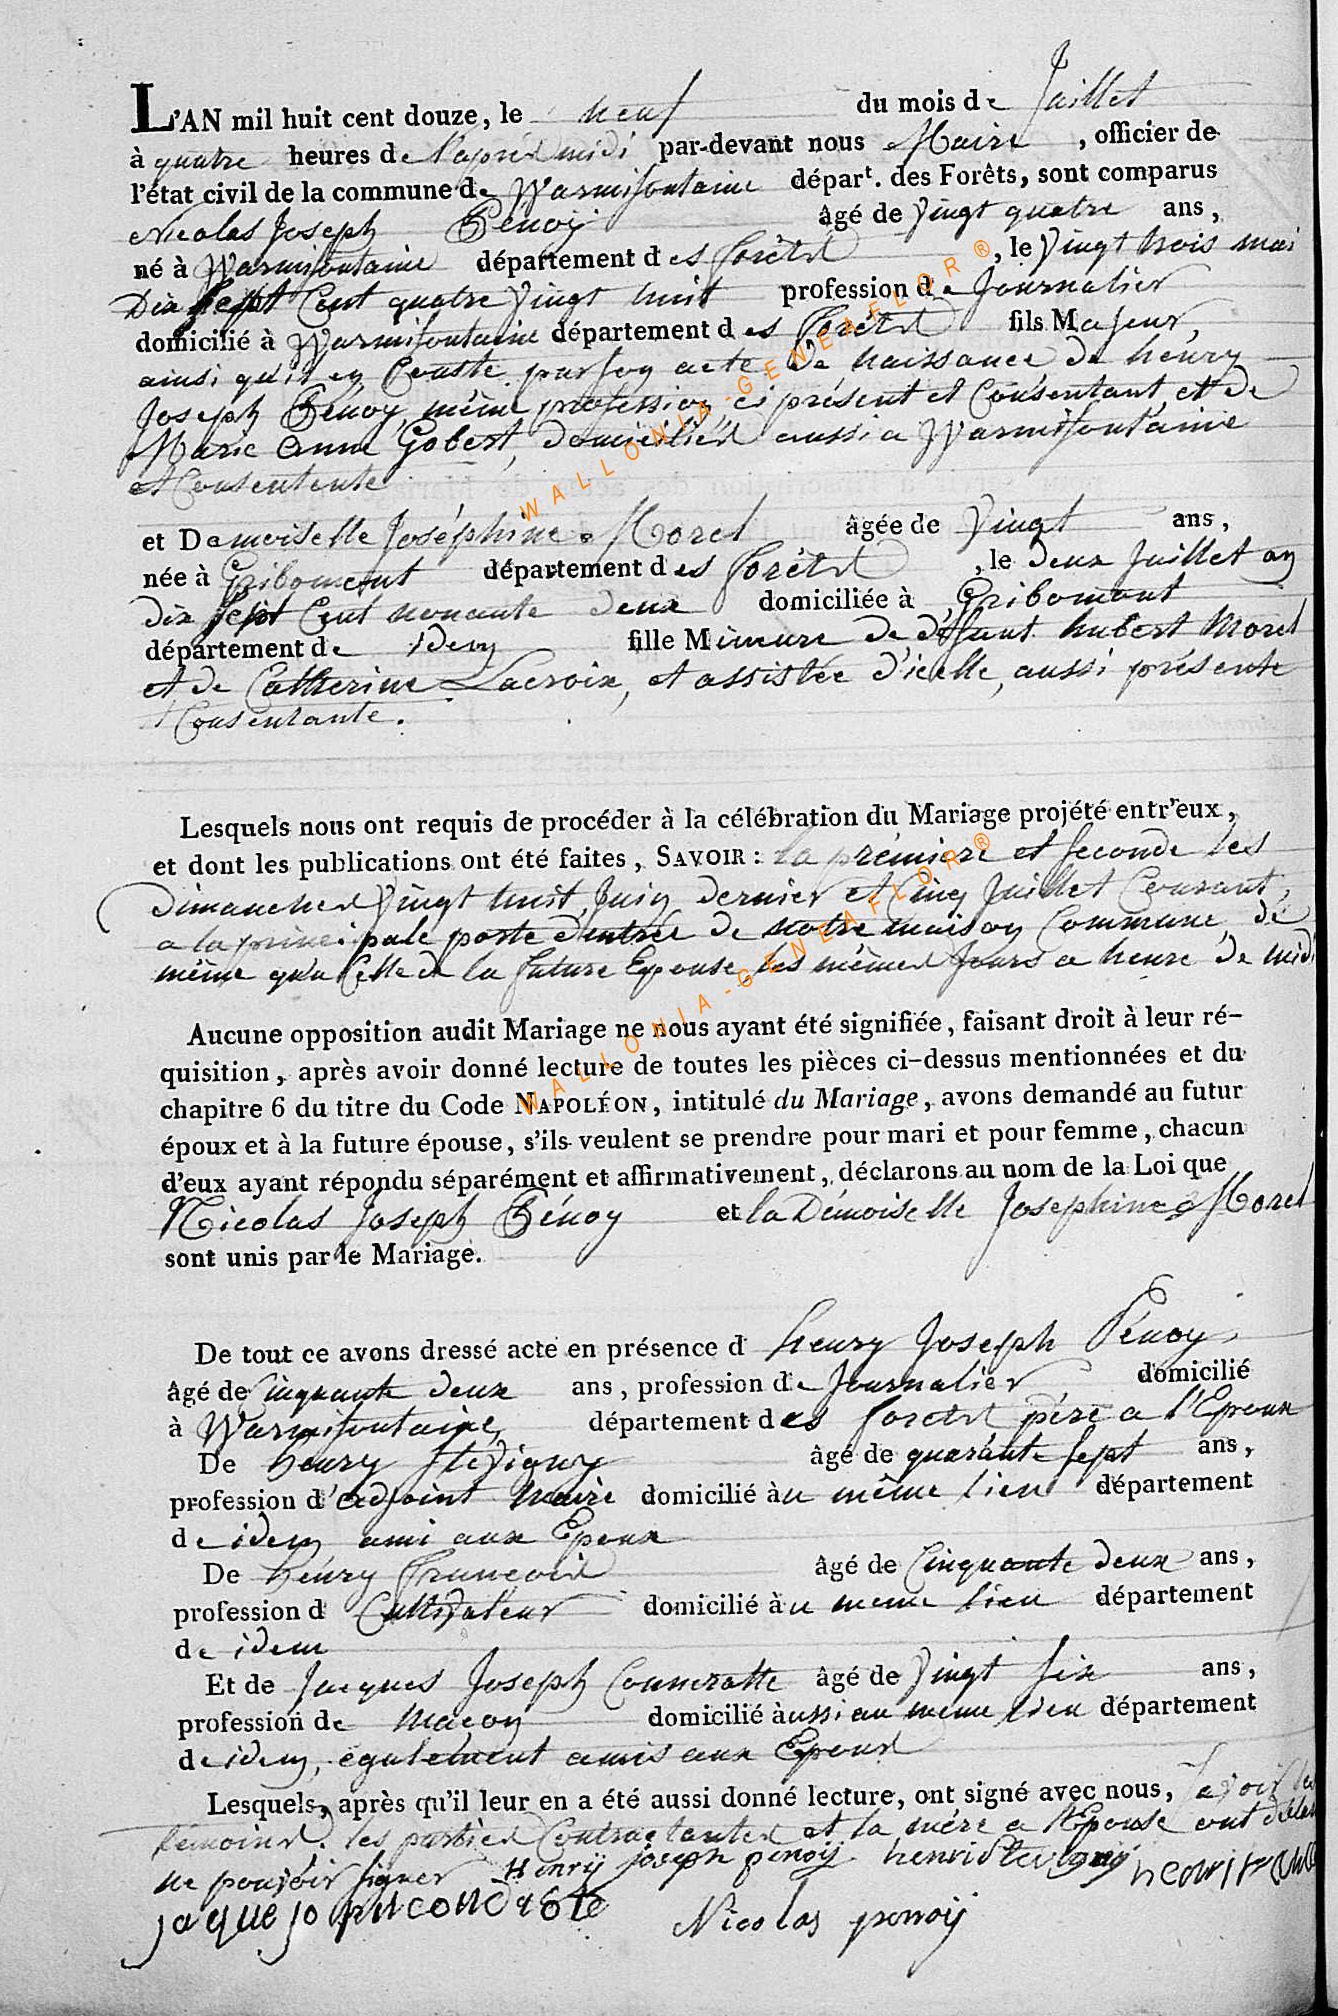 L'AN mil huit cent douze, le neuf du mois de Juillet
à quatre heures de l'après midi par-devant nous Maire, officier de
l'état civil de la commune de Warmifontaine départ. des Forêts, sont comparus
Nicolas Joseph Pénoy âgé de vingt quatre ans,
né à Warmifontaine département des forêts, le vingt trois mai
Dix sept Cent quatre vingt huit profession de Journalier
domicilié à Warmifontaine département des forêts fils Majeur,
ainsi qu'il en Conste par son acte de naissance de henry
Joseph Pénoy, même profession, ci présent et Consentant, et de
Marie anne Gobert, domiciliés aussi a Warmifontaine
et Consentente
et Demoiselle Joséphine Morel âgée de vingt ans,
née à Gribomont département des forêts, le deux Juillet an
dix sept Cent nonante deux domiciliée à Gribomont
département de idem fille Mineure de défunt hubert Morel
et de Catherine Lacroix, et assistée d'icelle, aussi présente
et Consentante.
Lesquels nous ont requis de procéder à la célébration du Mariage projété entr'eux,
et dont les publications ont été faites, SAVOIR : la première et seconde les
dimanches vingt huit Juin dernier et Cinq Juillet Courant,
a la principale porte d'entrée de notre maison Commune, de
même qu'a Celle de la future Epouse, les mêmes Jours a heure de midi
Aucune opposition audit Mariage ne nous ayant été signifiée, faisant droit à leur ré-
quisition, après avoir donné lecture de toutes les pièces ci-dessus mentionnées et du
chapitre 6 du titre du Code NAPOLÉON, intitulé du Mariage, avons demandé au futur
époux et à la future épouse, s'ils veulent se prendre pour mari et pour femme, chacun
d'eux ayant répondu séparément et affirmativement, déclarons au nom de la Loi que
Nicolas Joseph Pénoy et la Démoiselle Josephine Morel
sont unis par le Mariage.
De tout ce avons dressé acte en présence d henry Joseph Pénoy,
âgé de Cinquante deux ans, profession de Journalier domicilié
à Warmifontaine, département des forets père a l'Epoux
De henry Stevigny âgé de quarante sept ans,
profession d'adjoint Maire domicilié au même lieu département
de idem ami aux Epoux
De henry françois âgé de Cinquante deux ans,
profession d Cultivateur domicilié au même lieu département
de idem
Et de Jacques Joseph Conneratte âgé de vingt six ans,
profession de Maçon domicilié aussi au même lieu département
de idem, également amis aux Epoux
Lesquels, après qu'il leur en a été aussi donné lecture, ont signé avec nous, savoir les
témoins. les parties Contractantes et la mère a l'Epouse ont déclaré
ne pouvoir signer Henrij joseph penoij henri Stevigny
Nicolas penoij
WALLONIA-GENEAFLOR®
WALLONIA-GENEAFLOR®